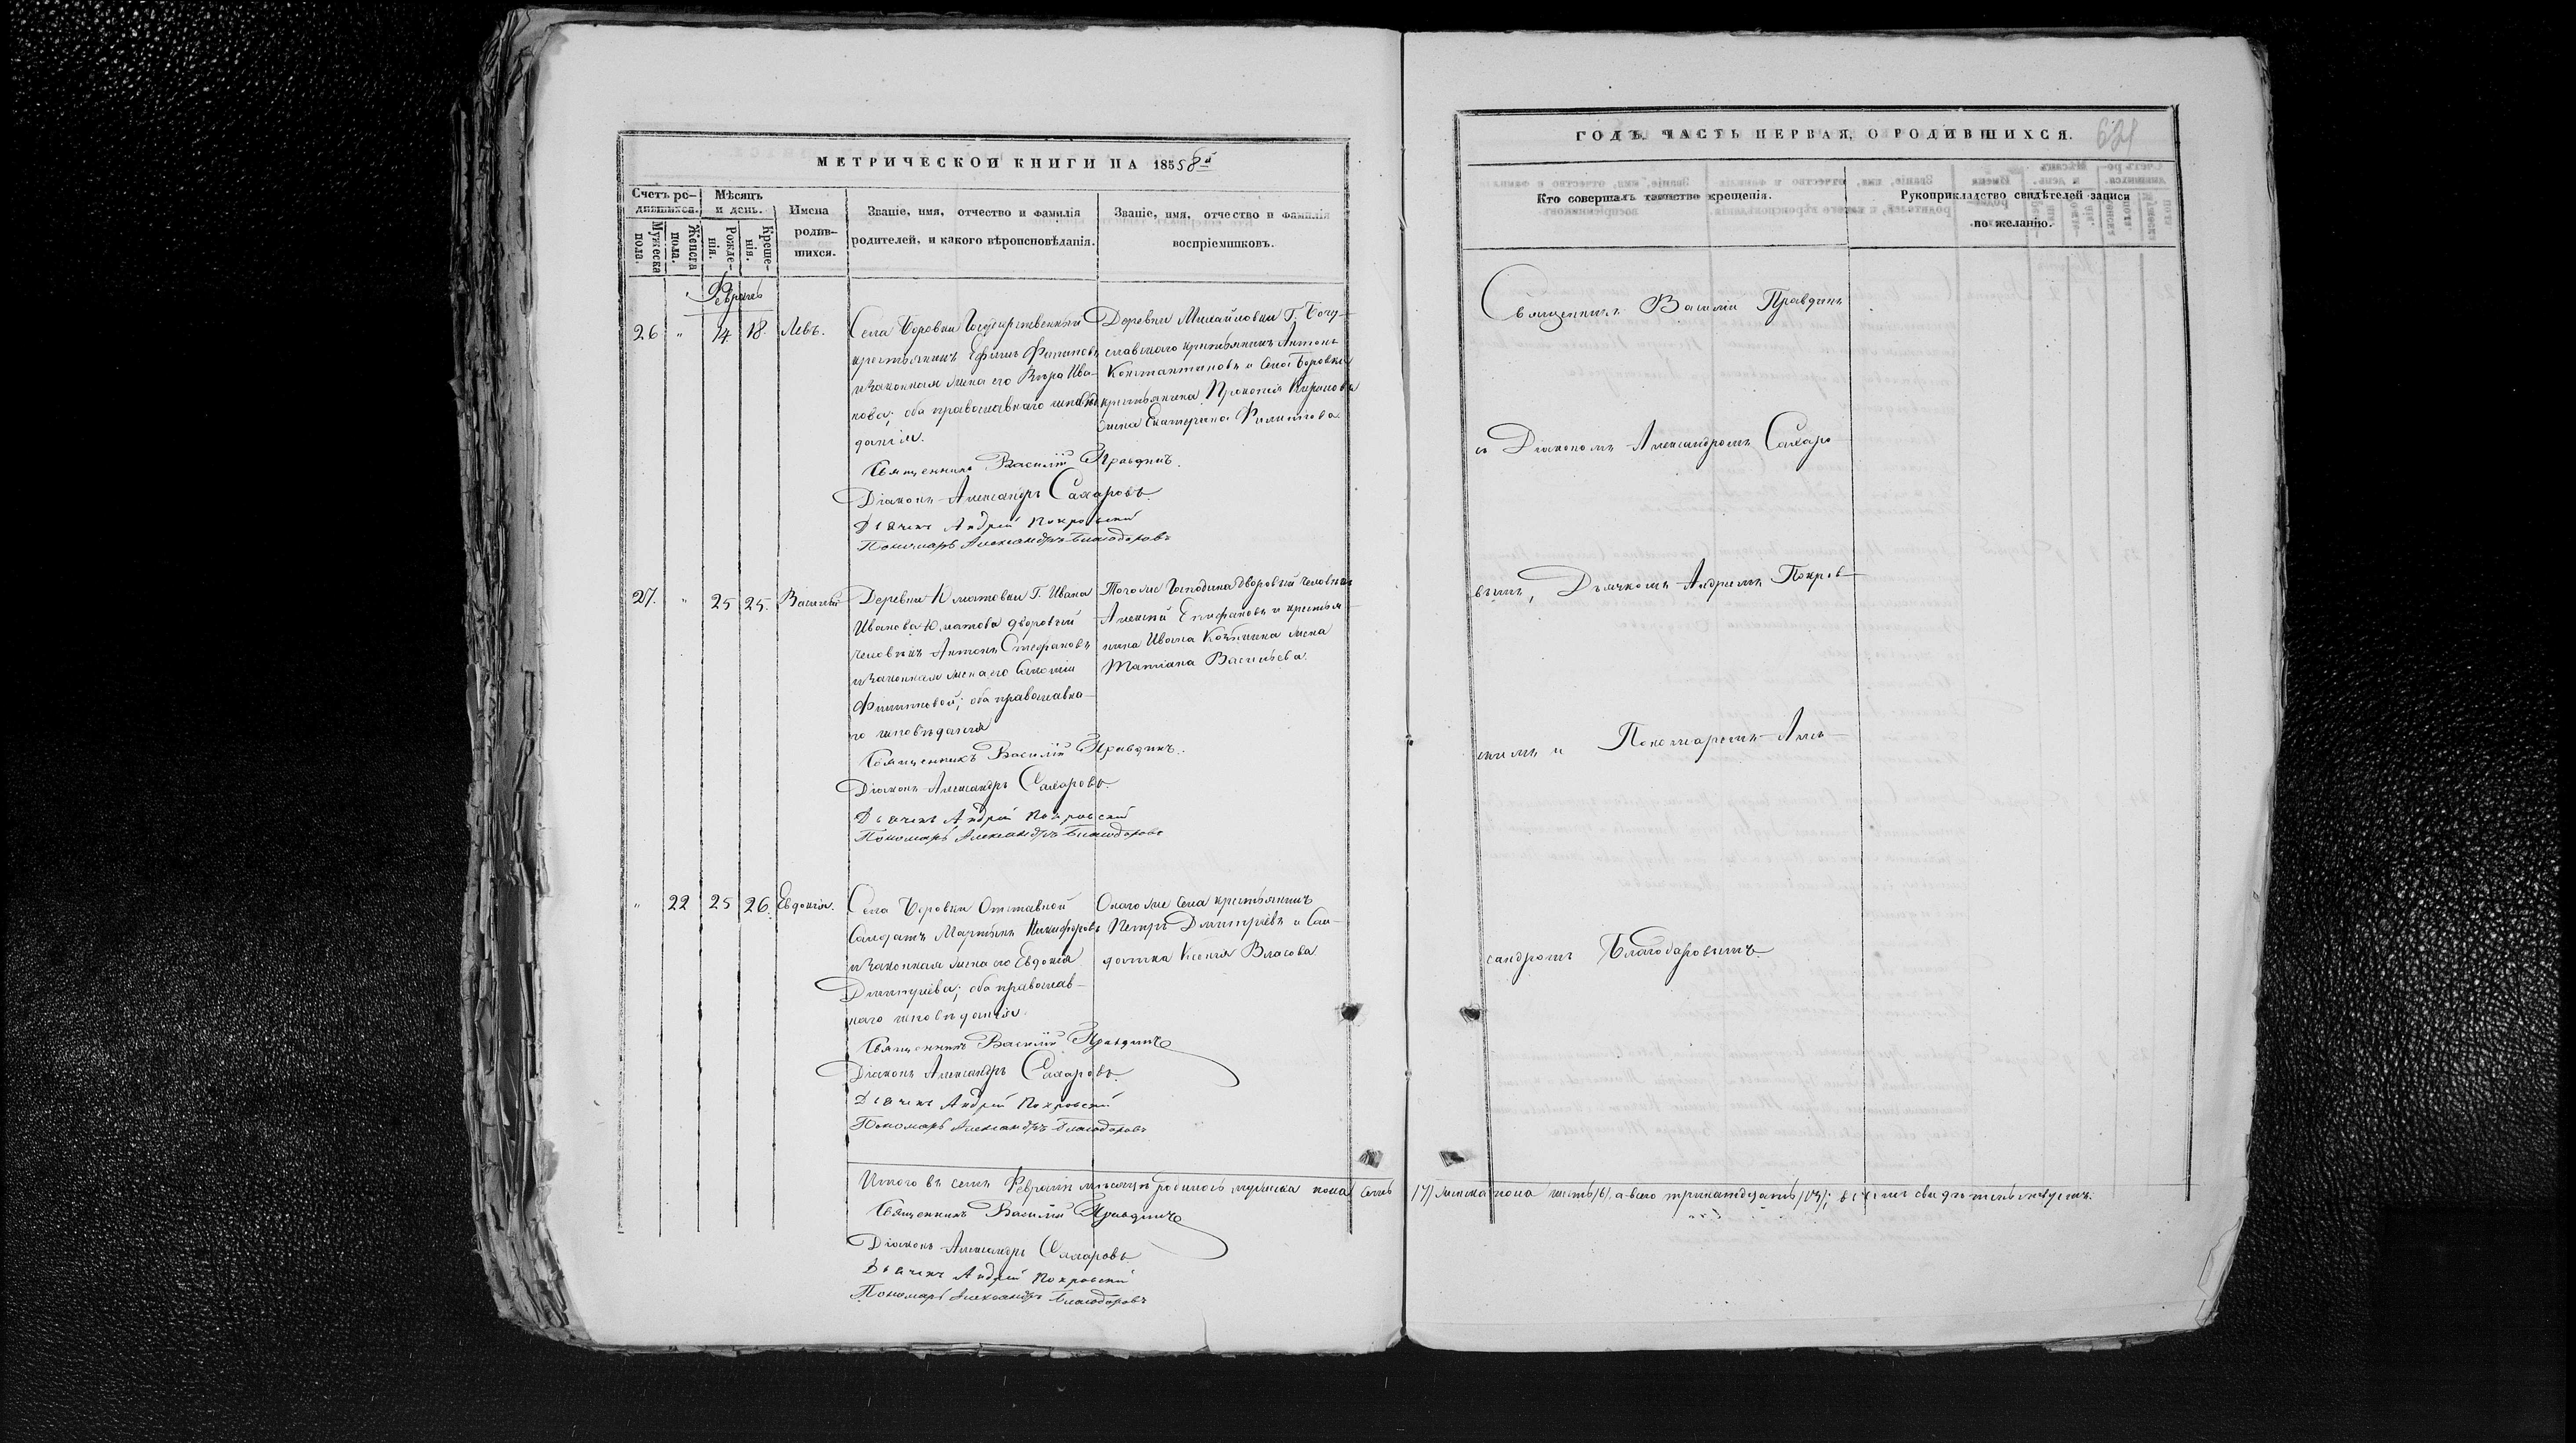 МЕТРИЧЕСКОЙ КНИГИ НА 1858й
Счетъ ро-
дившихся.
Мѣсяцъ
и день.
Мужеска
пола.
Женска
пола.
Рожде-
нія.
Креще-
нія.
Имена
родив-
шихся.
Званіе, имя, отчество и фамилія
родителей, и какого вѣроисповѣданія.
Званіе, имя, отчество и фамилія
воспріемниковъ.
Февраль
26 " 14 18. Левъ.
Села Боровки Государственный
крестьянинъ Ефимъ
и законная жена его Вѣра Ива-
нова; оба православнаго исповѣ
данія.
Деревни Михайловки Г. Богу-
славскаго крестьянинъ Антонъ
Константиновъ и села Боровки
крестьянина Прокопія
жена Екатерина Филиппова
Священникъ Василій Правдинъ.
Діаконъ Александръ Сахаровъ.
Дьячекъ Андрей Покровский
Пономарь Александръ Благодаровъ
27. " 25 25. Василій
Деревни Юматовки Г. Ивана
Иванова Юматова дворовый
человѣкъ Антонъ Стефановъ
и законная жена его
Филипповой; оба православна-
го исповѣданія
Того же Господина дворовый человѣкъ
Алексей Епифановъ и крестья-
нина Ивана жена
Татіана Васильева.
Священникъ Василій Правдинъ.
Діаконъ Александръ Сахаровъ.
Дьячекъ Андрей Покровский
Пономарь Александръ Благодаровъ
" 22 25 26. Евдокія.
Села Боровки Отставной
Солдатъ Мартынъ Никифоровъ
и законная жена его Евдокія
Димитріева; оба православ-
наго исповѣданія.
Онаго же села крестьянинъ
Петръ Димитріевъ и Сол-
датка Ксенія Власова
Священникъ Василій Правдинъ
Діаконъ Александръ Сахаровъ.
Дьячекъ Андрей Покровский
Пономарь Александръ Благодаровъ
Итого въ семъ Февралѣ мѣсяцѣ родилось мужеска пола семь /7/ женска пола шесть /6/, а всего тринатдцать /13/; въ чемъ свидѣтельствуемъ.
Священникъ Василій Правдинъ
Діаконъ Александръ Сахаровъ
Дьячекъ Андрей Покровский
Пономарь Александръ Благодаровъ
ГОДЪ. ЧАСТЬ ПЕРВАЯ, О РОДИВШИХСЯ.
Кто совершалъ таинство крещенія.
Рукоприкладство свидѣтелей записи
по желанію.
Священникъ Василій Правдинъ
съ Діакономъ Александромъ Сахаро
вымъ, Дьячкомъ Андреемъ Покров-
скимъ и Пономаремъ Алек-
сандромъ Благодаровымъ